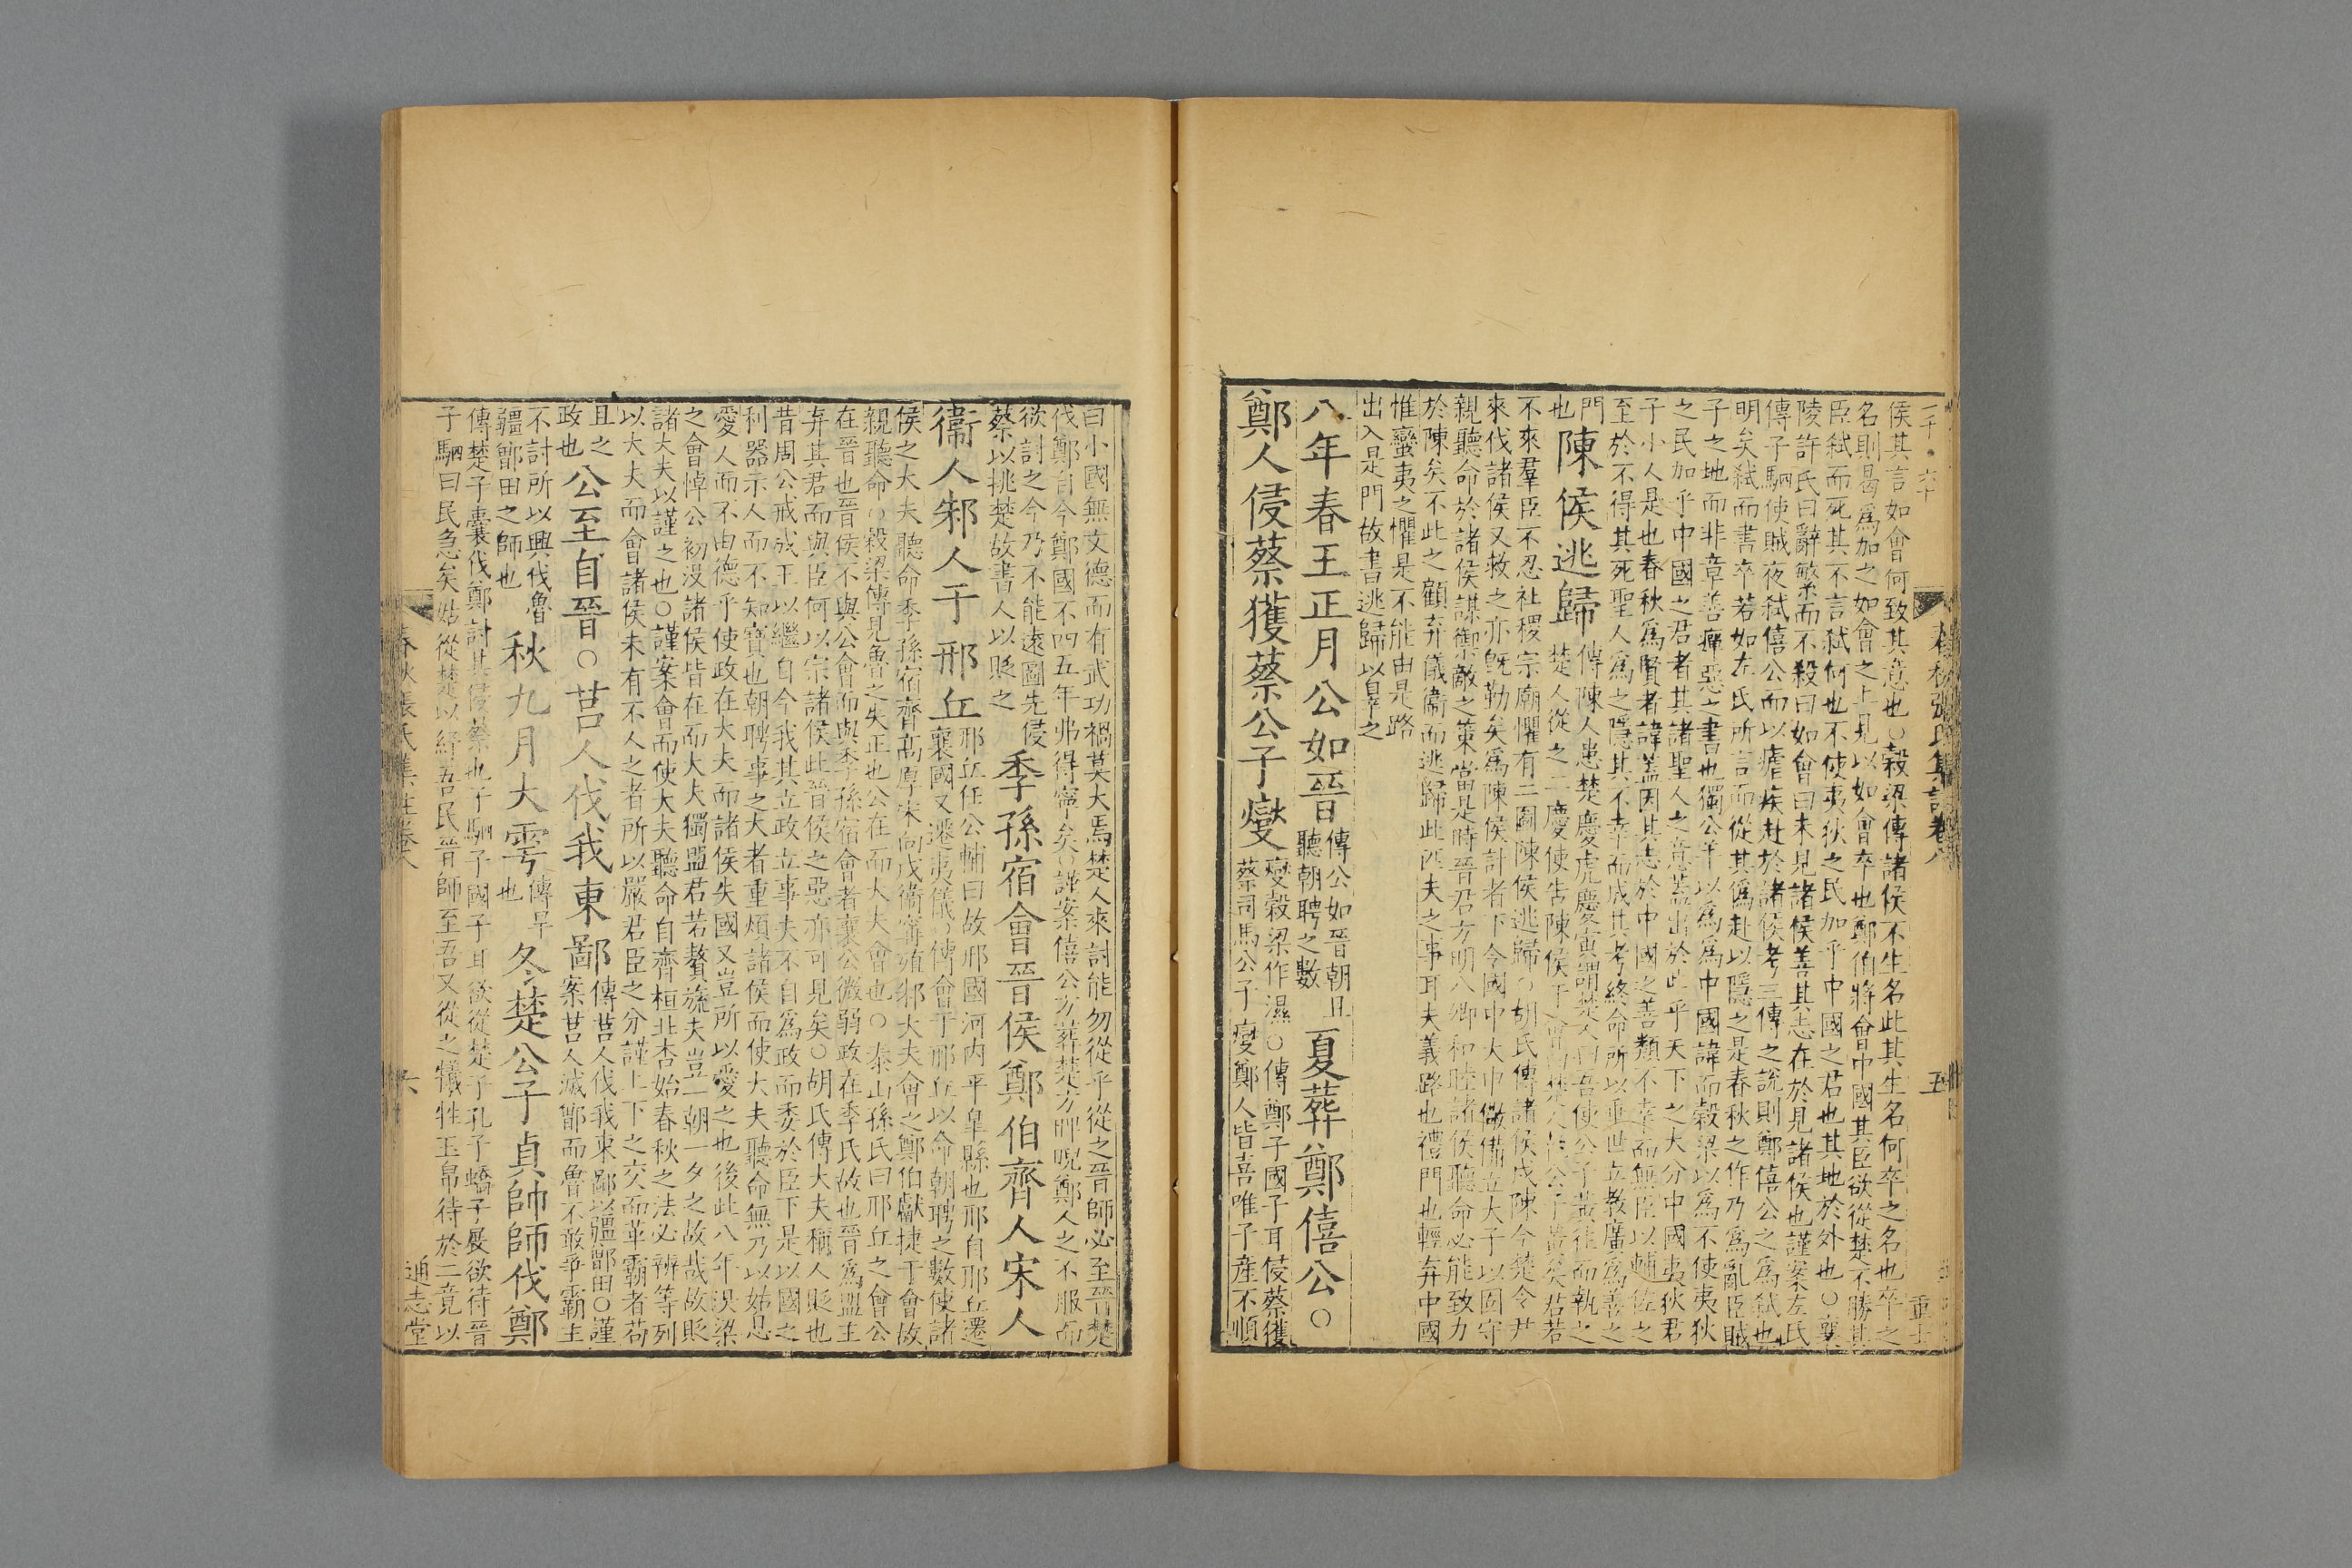 春秋張氏集註卷八 五
侯其言如會何致其意也○穀梁傳諸侯不生名此其生名何卒之名也卒之
名則曷爲加之如會之上見以如會卒也鄭伯將會中國其臣欲從楚不勝其
臣弑而死其不言弑何也不使夷狄之民加乎中國之君也其地於外也○襄
陵許氏曰辭繁而不殺曰如會曰未見諸侯善其志在於見諸侯也謹案左氏
傳子駟使賊夜弑僖公而以瘧疾赴於諸侯考三傳之說則鄭僖公之爲弑也
明矣弑而書卒若如左氏所言而從其僞赴以隱之是春秋之作乃爲亂臣賊
子之地而非章善癉惡之書也獨公羊以爲爲中國諱而穀梁以爲不使夷狄
之民加乎中國之君者其諸聖人之意蓋出於此乎天下之大分中國夷狄君
子小人是也春秋爲賢者諱蓋因其志於中國之善類不幸而無臣以輔佐之
至於不得其死聖人爲之隱其不幸而成其考終命所以垂世立教廣爲善之
門
也
陳侯逃歸
傳陳人患楚慶虎慶寅謂楚人曰吾使公子黃往而執之
楚人從之二慶使告陳侯于會曰楚人執公子黃矣君若
不來羣臣不忍社稷宗廟懼有二圖陳侯逃歸○胡氏傳諸侯戍陳今楚令尹
來伐諸侯又救之亦旣勤矣爲陳侯計者下令國中大申儆備立太子以固守
親聽命於諸侯謀禦敵之策當是時晉君方明八卿和睦諸侯聽命必能致力
於陳矣不此之顧弃儀衞而逃歸此匹夫之事耳夫義路也禮門也輕弃中國
惟蠻夷之懼是不能由是路
出入是門故書逃歸以辠之
八年春王正月公如晉
傳公如晉朝且
聽朝聘之數
夏葬鄭僖公○
鄭人侵蔡獲蔡公子燮
燮穀梁作濕○傳鄭子國子耳侵蔡獲
蔡司馬公子燮鄭人皆喜唯子產不順
曰小國無文德而有武功禍莫大焉楚人來討能勿從乎從之晉師必至晉楚
伐鄭自今鄭國不四五年弗得寧矣○謹案僖公方葬楚方睥睨鄭人之不服而
欲討之今乃不能遠圖先侵
蔡以挑楚故書人以貶之
季孫宿會晉侯鄭伯齊人宋人
衞人邾人于邢丘
邢丘任公輔曰故邢國河內平臯縣也邢自邢丘遷
襄國又遷夷儀○傳會于邢丘以命朝聘之數使諸
侯之大夫聽命季孫宿齊髙厚宋向戌衞甯殖邾大夫會之鄭伯獻捷于會故
親聽命○穀梁傳見魯之失正也公在而大夫會也○泰山孫氏曰邢丘之會公
在晉也晉侯不與公會而與季孫宿會者襄公微弱政在季氏故也晉爲盟主
弃其君而與臣何以宗諸侯此晉侯之惡亦可見矣○胡氏傳大夫稱人貶也
昔周公戒成王以繼自今我其立政立事夫不自爲政而委於臣下是以國之
利器示人而不知寶也朝聘事之大者重煩諸侯而使大夫聽命無乃以姑息
愛人而不由德乎使政在大夫而諸侯失國又豈所以愛之也後此八年溴梁
之會悼公初沒諸侯皆在而大夫獨盟君若贅旒夫豈一朝一夕之故哉故貶
諸大夫以謹之也○謹案會而使大夫聽命自齊桓北杏始春秋之法必辨等列
以大夫而會諸侯未有不人之者所以嚴君臣之分謹上下之交而革霸者苟
且之
政也
公至自晉○莒人伐我東鄙
傳莒人伐我東鄙以疆鄫田○謹
案莒人滅鄫而魯不敢爭霸主
不討所以興伐魯
疆鄫田之師也
秋九月大雩
傳旱
也
冬楚公子貞帥師伐鄭
傳楚子囊伐鄭討其侵蔡也子駟子國子耳欲從楚子孔子蟜子展欲待晉
子駟曰民急矣姑從楚以紓吾民晉師至吾又從之犧牲玉帛待於二竟以
春秋張氏集註卷八 六 通志堂